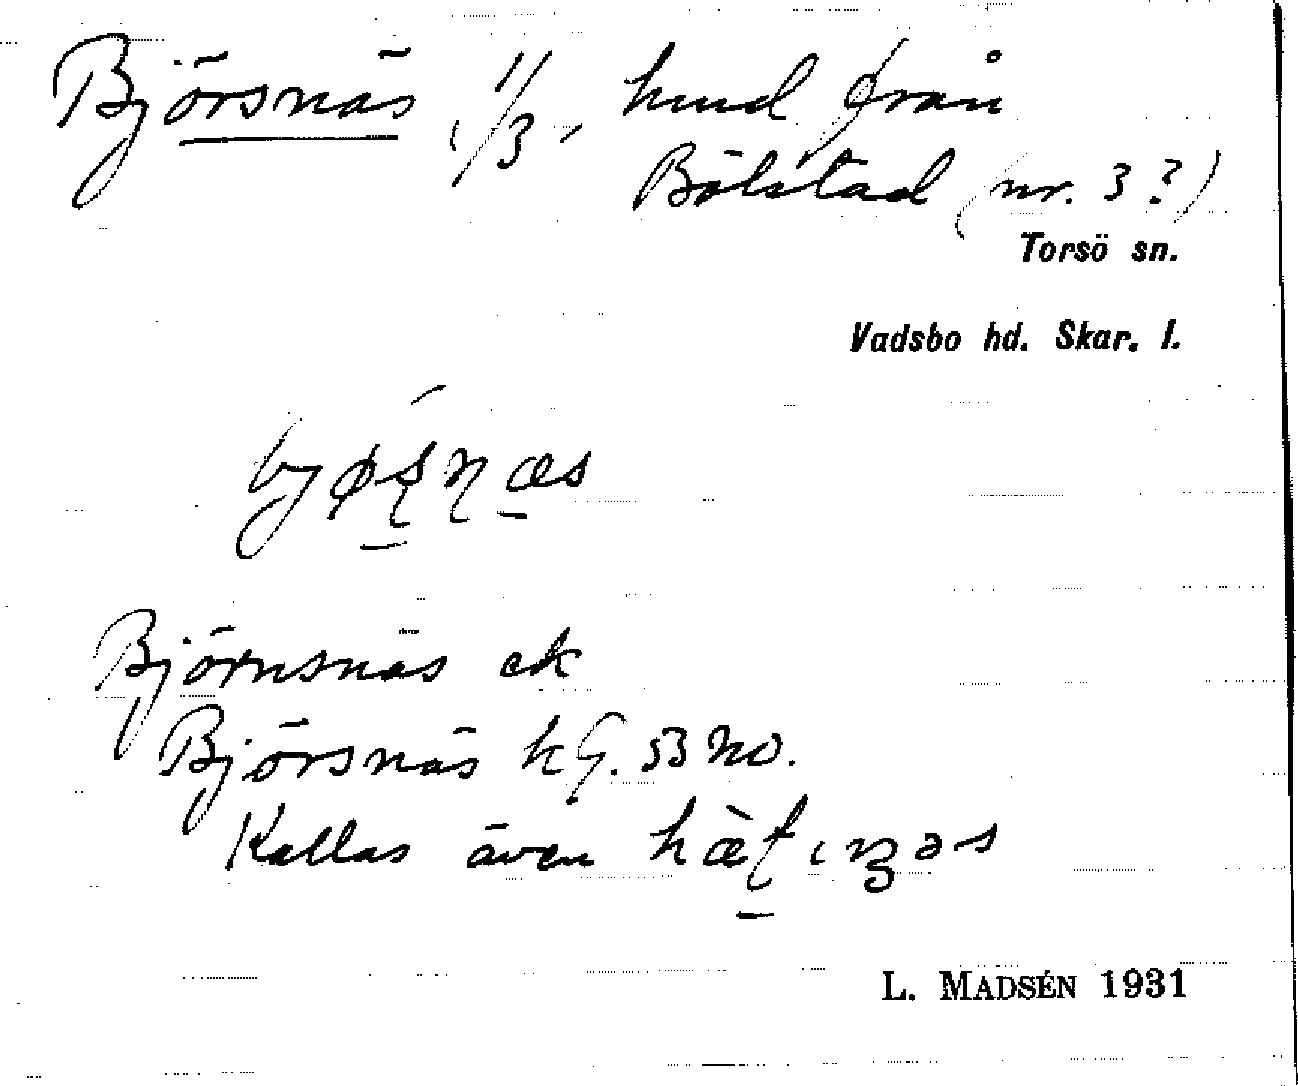 Björsnäs, 1/3, hmd från
Bölstad (nr. 3?)
Torsö sn.
Vadsbo hd. Skar. l.
Björnsnäs ek
Björsnäs hG. 53 NO.
Kallas även
L. MADSÉN 1931